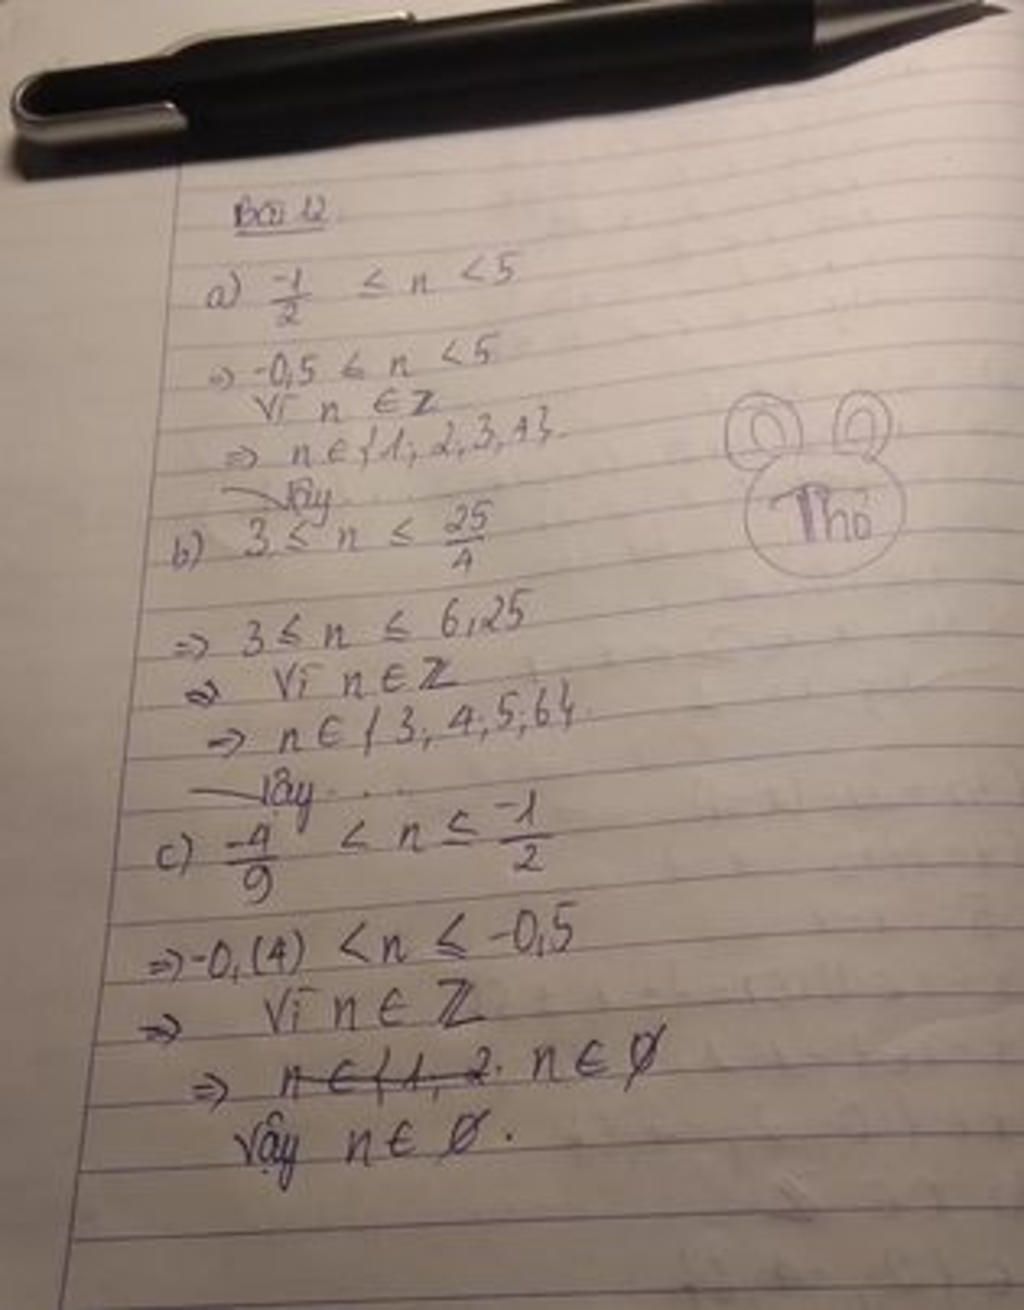 Bài 12
a) -1/2 ≤ n < 5
=> -0,5 ≤ n < 5
Vì n ∈ Z
=> n ∈ {1; 2; 3; 4}.
Vậy ...
b) 3 ≤ n ≤ 25/4
=> 3 ≤ n ≤ 6,25
=> Vì n ∈ Z
=> n ∈ {3; 4; 5; 6}.
Vậy ...
c) -4/9 < n ≤ -1/2
=> -0,(4) < n ≤ -0,5
=> Vì n ∈ Z
=> n ∈ {1, 2. n ∈ ∅
Vậy n ∈ ∅.
Thỏ